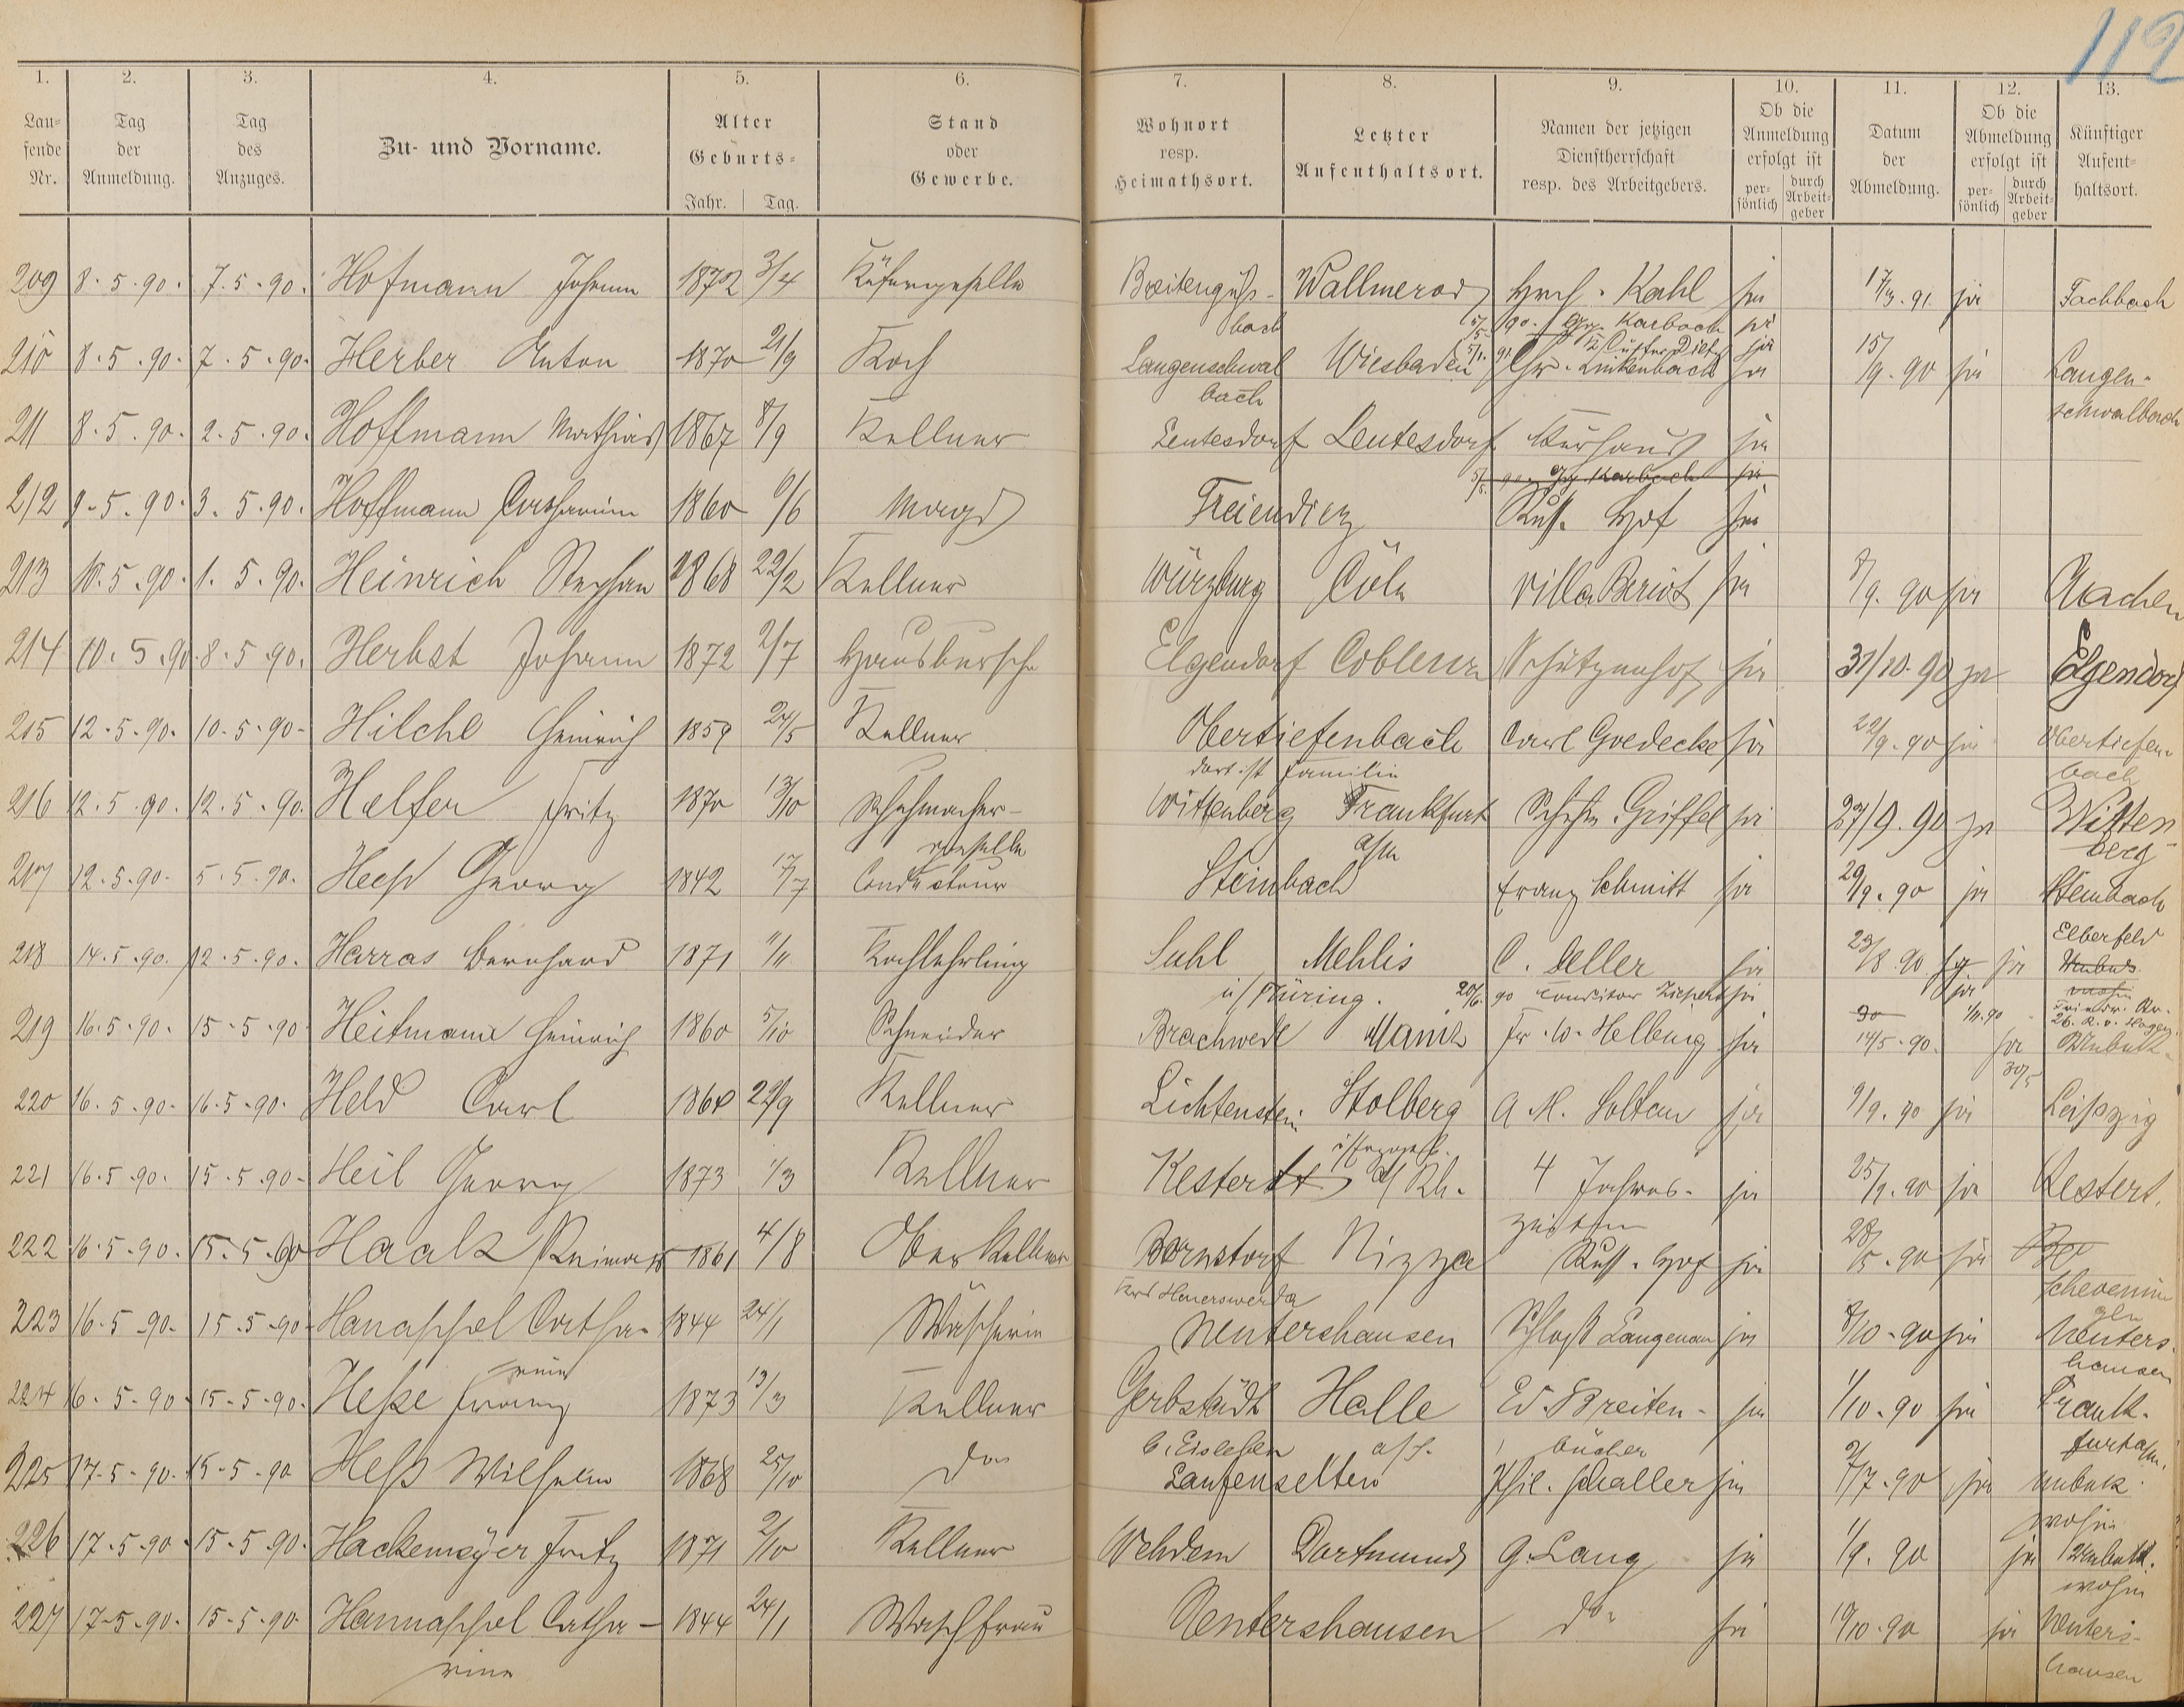 112
1. 2. 3. 4. 5. 6. 7. 8. 9. 10. 11. 12. 13.
Lau=
fende
Nr.
Tag
der
Anmeldung.
Tag
des
Anzuges.
Zu- und Vorname.
Alter
Geburts=
Jahr. Tag.
Stand
oder
Gewerbe.
Wohnort
resp.
Heimathsort.
Letzter
Aufenthaltsort.
Namen der jetzigen
Dienstherrschaft
resp. des Arbeitgebers.
Ob die
Anmeldung
erfolgt ist
per-
sönlich
durch
Arbeit-
geber
Datum
der
Abmeldung.
Ob die
Abmeldung
erfolgt ist
per-
sönlich
durch
Arbeit-
geber
Künftiger
Aufent-
haltsort.
209 8.5.90. 7.5.90. Hofmann Johann 1872 3/4 Küfergeselle Breitengüß- Wallmerod Hrch. Kahl ja 91 ja Fachbach
bach 90. Karbach ja
210 8.5.90. 7.5.90. Herber Anton 1870 21/9 Koch Langenschwal Wiesbaden Chr. Linkenbach ja 15/9.90 ja Langen-
bach schwalbach
211 8.5.90. 2.5.90. Hoffmann Mathias 1867 8/9 Kellner Leutesdorf Leutesdorf Kurhaus ja
Karbach ja
212 9.5.90. 3.5.90. Hoffmann Catharina 1860 6/6 Magd Freiendiez Russ. Hof ja
213 10.5.90. 1.5.90. Heinrich Stephan 1868 22/2 Kellner Würzburg Cöln Villa Beriot ja 8/9.90 ja Aachen
214 10.5.90. 8.5.90. Herbst Johann 1872 2/7 Hausbursche Elgendorf Coblenz Schützenhof ja 31/10.90 ja Elgendorf
215 12.5.90. 10.5.90. Hilche Heinrich 1859 24/5 Kellner Obertiefenbach Carl Goedecke ja 22/9.90 ja Obertiefen-
dort ist Familie bach
216 12.5.90. 12.5.90. Helfer Fritz 1870 13/10 Schuhmacher- Wittenberg Frankfurt Griffel ja 27/9.90 ja Witten-
geselle a/M berg
217 12.5.90. 5.5.90. Heess Georg 1842 17/7 Conducteur Steinbach Franz Schmitt ja 29/9.90 ja Steinbach
218 14.5.90. 12.5.90. Harras Bernhard 1871 11/11 Kochlehrling Suhl Mehlis C. Seller ja 23/8.90 ja Elberfeld
i/ Thüring. 20/6. 90 Conditor ja
219 16.5.90. 15.5.90 Heitmann Heinrich 1860 5/10 Schneider Brachwede Mainz Fr. W. Helbing ja 14/5.90. ja Unbek.
220 16.5.90. 16.5.90. Held Carl 1868 22/9 Kellner Lichtenstein Stolberg A. M. Soltau ja 9/9.90 ja Leipzig
i/Erzgeb.
221 16.5.90. 15.5.90. Heil Georg 1873 1/3 Kellner Kestert a/Rh. 4 Jahres- ja 25/9.90 ja Kestert.
zeiten
222 16.5.90. 15.5.90 Haak 1861 4/8 Oberkellner Bornstorf Nizza Russ. Hof ja 28/5.90 ja Schevenin
Hauerswerda gen
223 16.5.90. 15.5.90 Hanappel Catha- 1844 24/1 Wäscherin Nentershausen Schloß Langenau ja 8/10.90 ja Nenters-
rine hausen
224 16.5.90 15.5.90. Heße Franz 1873 13/3 Kellner Gerbstädt Halle Ed. Breiten- ja 1/10.90 ja Frank-
b. Eisleben a/S. bücher furt a/M.
225 17.5.90. 15.5.90 Heß Wilhelm 1868 25/10 do Laufenselten Phil. Schaller ja 7.90 ja unbek.
wohin
226 17.5.90 15.5.90. Hackemeyer Fritz 1871 2/10 Kellner Wehdem Dortmund G. Lang ja 1/9.90 ja Unbek.
wohin
227 17.5.90. 15.5.90 Hannappel Catha- 1844 24/1 Waschfrau Nentershausen do ja 10/10.90 ja Nenters-
rine hausen